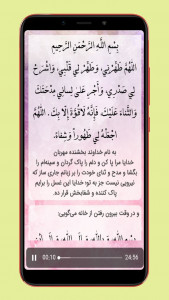 بِسْمِ اللَّهِ الرَّحْمَنِ الرَّحِيمِ
اللَّهُمَّ طَهِّرْنِي، وَطَهِّرْ لِي قَلْبِي، وَاشْرَحْ
لِي صَدْرِي، وَأَجْرِ عَلَى لِسَانِي مِدْحَتَكَ
وَالثَّنَاءَ عَلَيْكَ، فَإِنَّهُ لاَ قُوَّةَ إِلاَّ بِكَ. اللَّهُمَّ
اجْعَلْهُ لِي طَهُوراً وَشِفَاءً.
به نام خداوند بخشنده مهربان
خدایا مرا پا کن و دلم را پاک گردان و سینه‌ام را
بگشا و مدح و ثنای خودت را بر زبانم جاری ساز که
نیرویی نیست جز به تو؛ خدایا این غسل را برایم
پاک کننده و شفابخش قرار ده.
و در وقت بیرون رفتن از خانه می‌گویی:
00:10
24:56